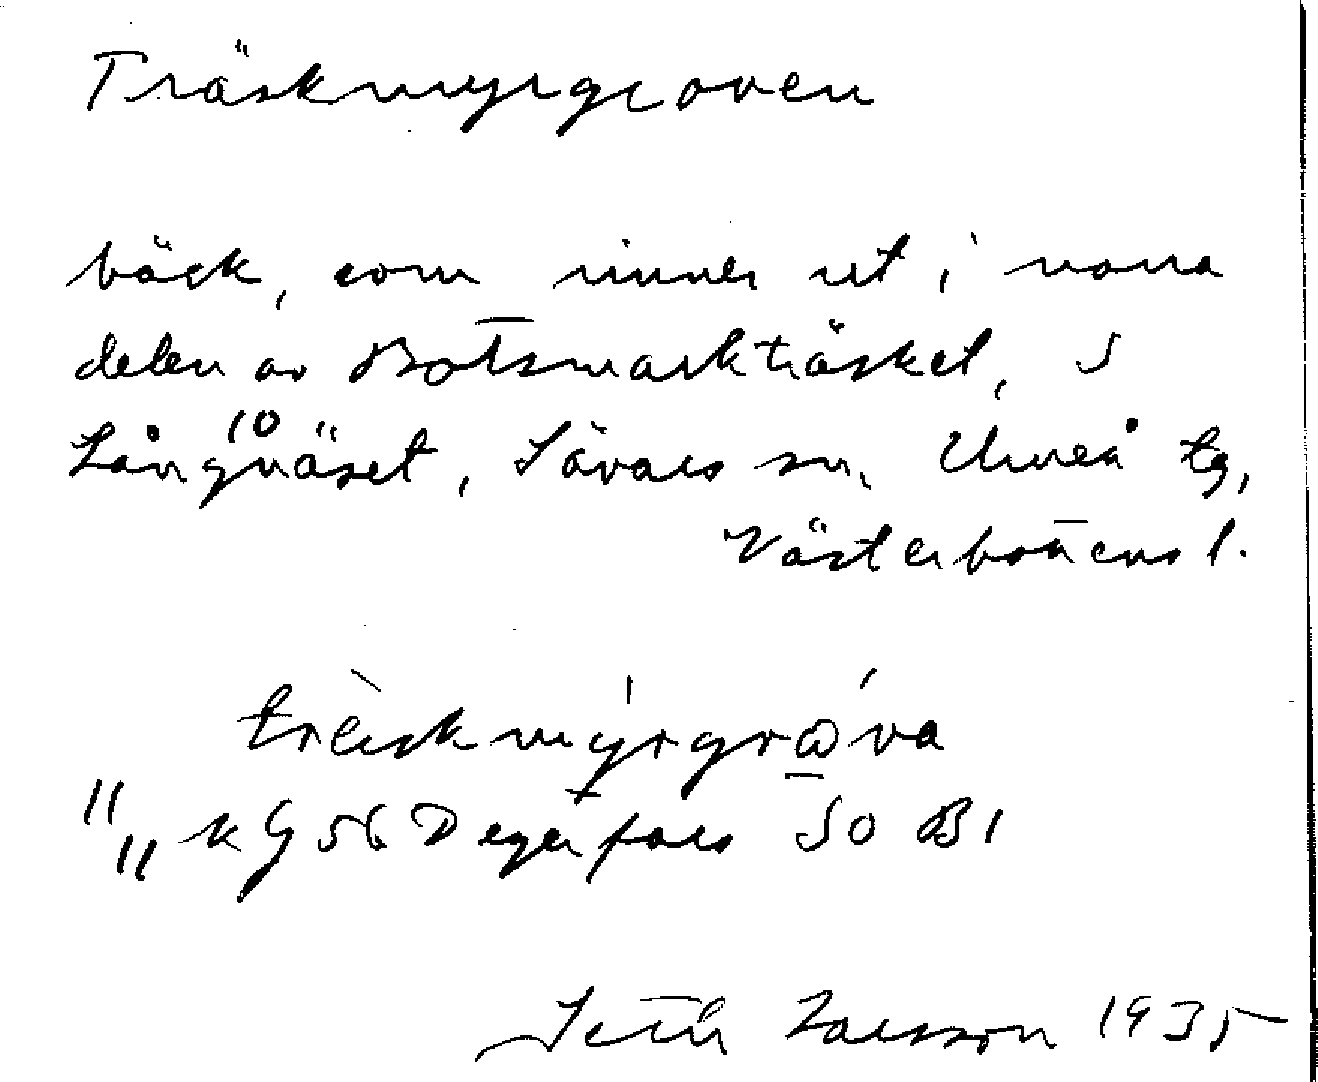 Träskmyrgroven
bäck, som rinner ut i norra
delen av Botsmarkträsket, S
Långnäset, Sävars sn, Umeå tg,
10
Västerbottens l.
träskmýrgrova
"„ k G 56 Degerfors SO B1
Seth Larsson 1935